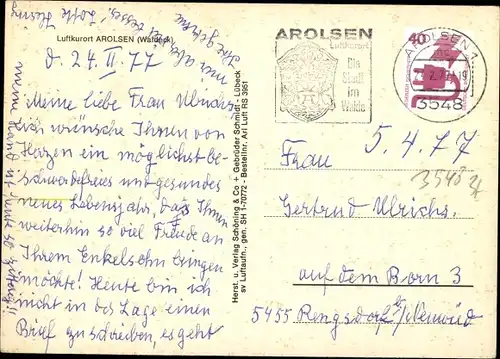 Luftkurort AROLSEN (Waldeck)
d. 24. II. 77
Meine liebe Frau Ulrichs!
Ich wünsche Ihnen von
Herzen ein möglichst be-
schwerdefreies und gesundes
neues Lebensjahr, das Ihnen
weiterhin so viel Freude an
Ihrem Enkelsohn bringen
möchte! Heute bin ich
nicht in der Lage einen
Brief zu schreiben, es geht
meine Hand ist heute so zittrig!!
mir aber
Ihre
Lotte
Herst. u. Verlag Schöning & Co + Gebrüder Schmidt - Lübeck
sv Luftaufn., gen. SH 1-70772 - Bestellnr. Arl Luft RS 3951
AROLSEN
Luftkurort
Die
Stadt
im
Walde
AROLSEN 1
3548
40
5.4.77
Frau
Gertrud Ulrichs
auf dem Born 3
5455 Rengsdorf b/Neuwied